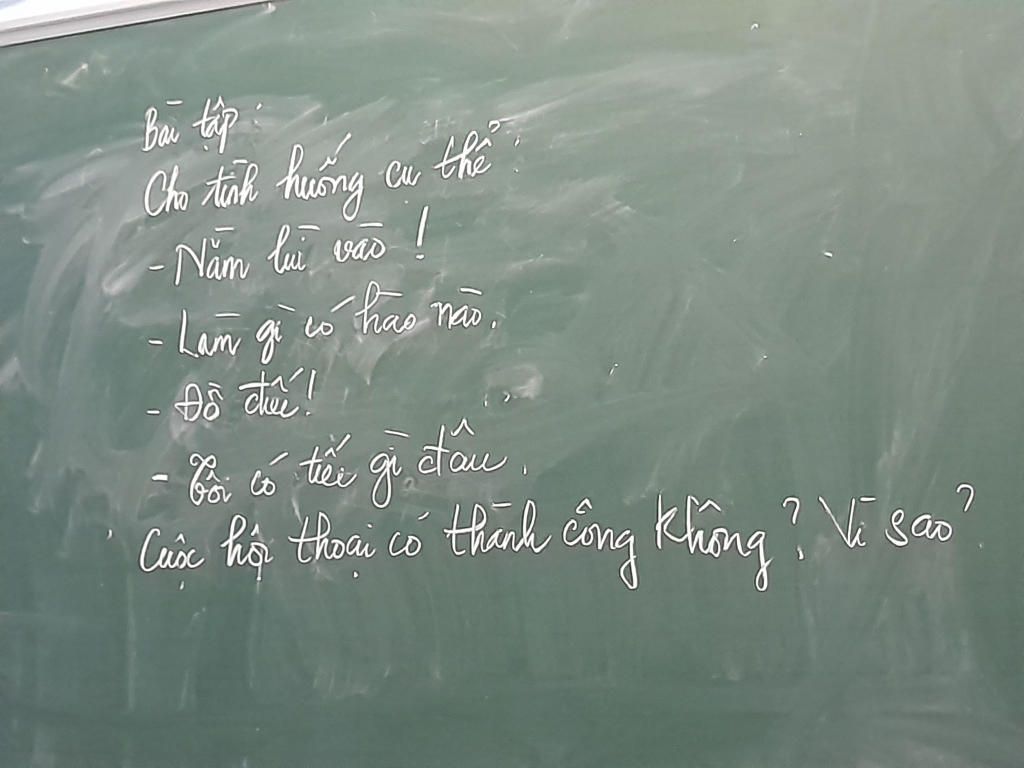 Bài tập:
Cho tình huống cụ thể:
- Nằm lùi vào!
- Làm gì có hào nào.
- Đồ điếc!
- Tôi có tiếc gì đâu.
Cuộc hội thoại có thành công không? Vì sao?